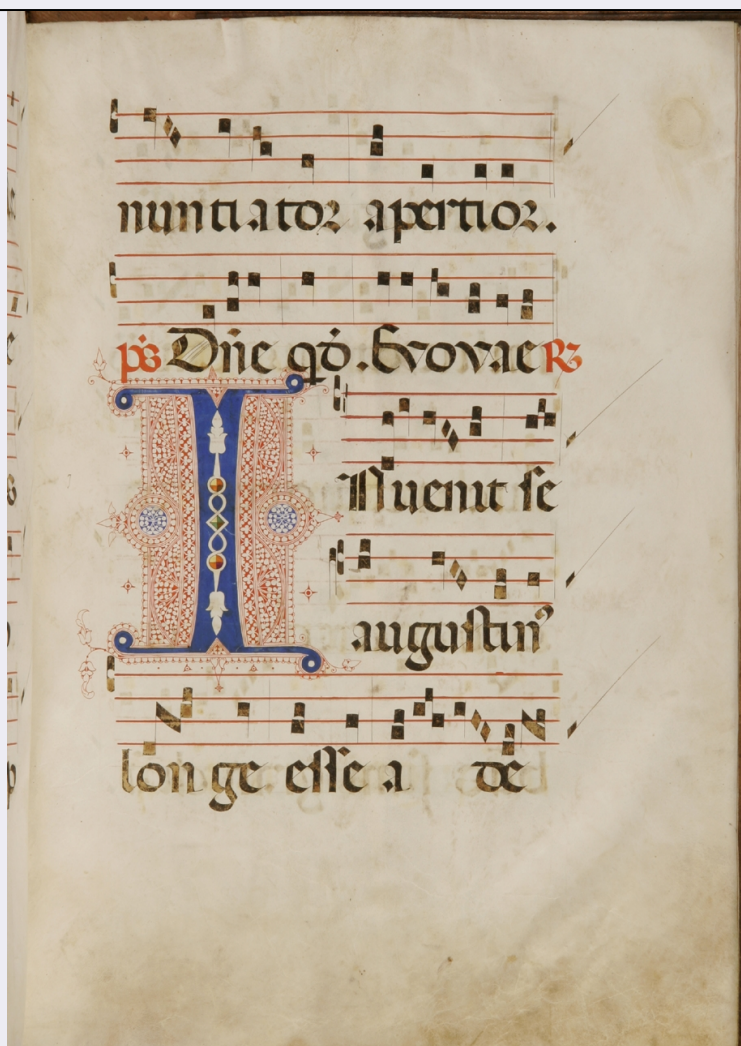 nuntiator apertior.
ps Dñe qd. Evovae R
Invenit se
augustin⁹
longe esse a de